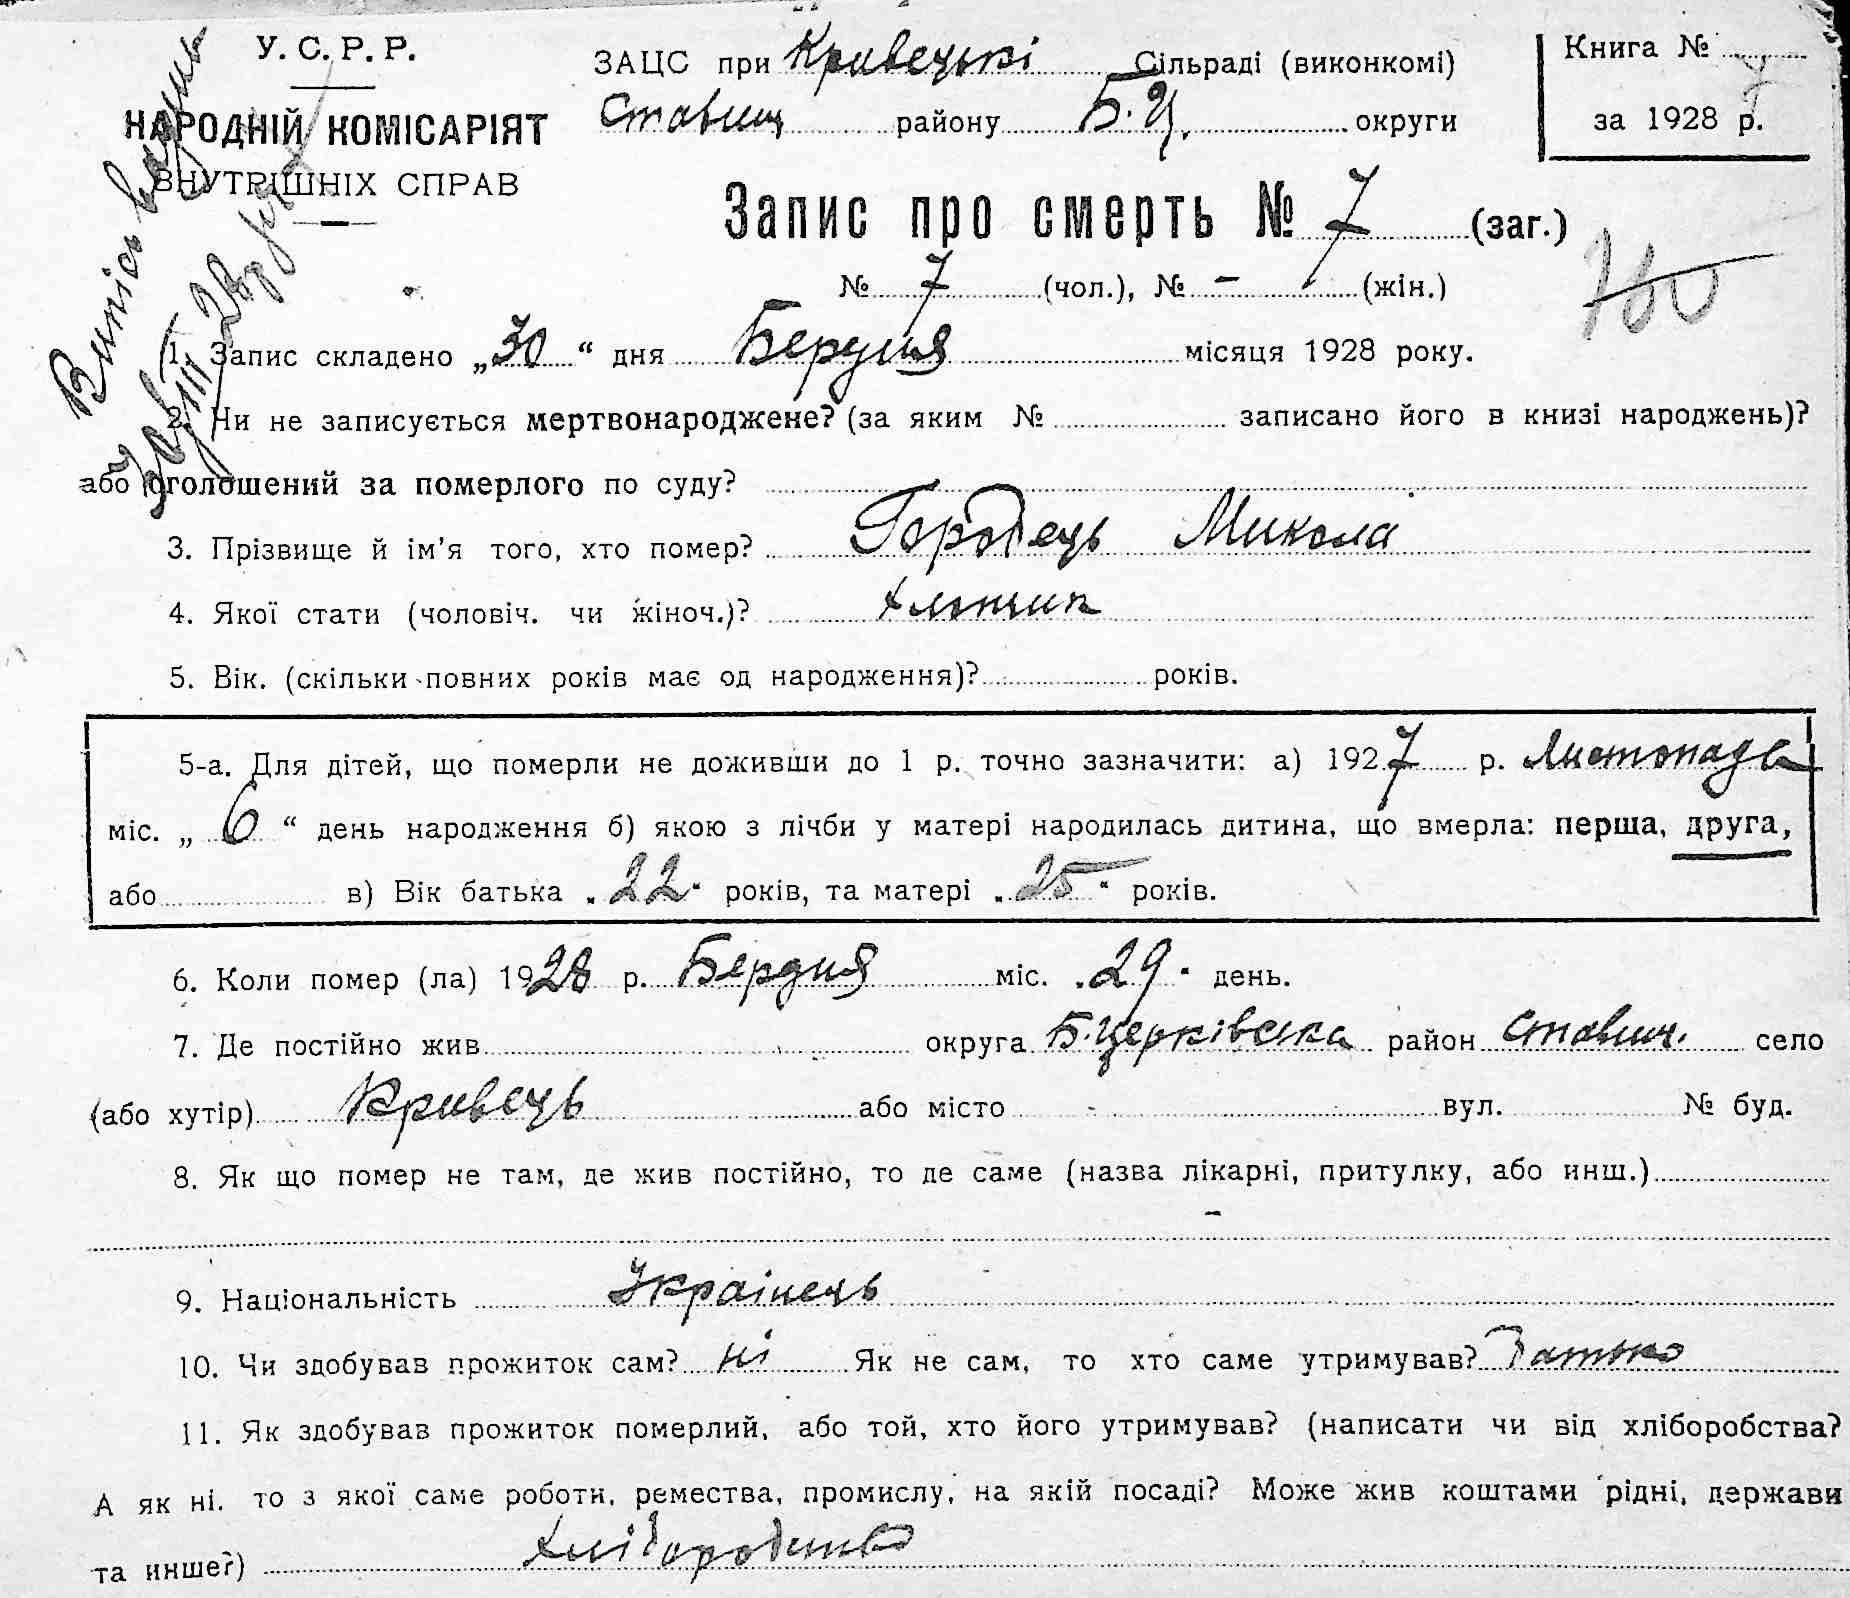 У. С. Р. Р.
НАРОДНІЙ КОМІСАРІЯТ
ВНУТРІШНІХ СПРАВ
ЗАЦС при Кривецькі Сільраді (виконкомі)
Ставищ району Б. Ц. округи
Книга №
за 1928 р.
Запис про смерть № 7 (заг.)
№ 7 (чол.), № - (жін.)
1. Запис складено „30“ дня Бердня місяця 1928 року.
2. Чи не записується мертвонароджене? (за яким № записано його в книзі народжень)?
або оголошений за померлого по суду?
3. Прізвище й ім’я того, хто помер? Городець Микола
4. Якої стати (чоловіч. чи жіноч.)? хлопчик
5. Вік. (скільки повних років має од народження)? років.
5-а. Для дітей, що померли не доживши до 1 р. точно зазначити: а) 1927 р. Листопада
міс. „6“ день народження б) якою з лічби у матері народилась дитина, що вмерла: перша, друга,
або в) Вік батька „22“ років, та матері „25“ років.
6. Коли помер (ла) 1928 р. Бердня міс. „29“ день.
7. Де постійно жив округа Б. Церківська район Ставищ. село
(або хутір) Кривець або місто - вул. № буд.
8. Як що помер не там, де жив постійно, то де саме (назва лікарні, притулку, або инш.)
-
9. Національність Українець
10. Чи здобував прожиток сам? ні Як не сам, то хто саме утримував? Батько
11. Як здобував прожиток померлий, або той, хто його утримував? (написати чи від хліборобства?
А як ні, то з якої саме роботи, ремества, промислу, на якій посаді? Може жив коштами рідні, держави
та инше?) хліборобство